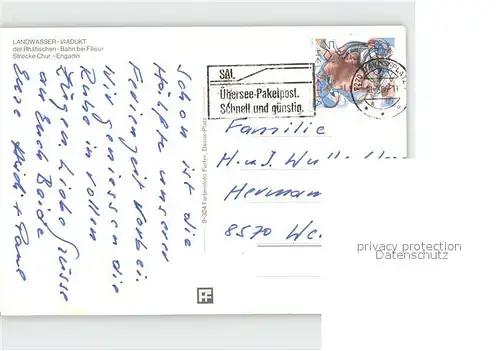 LANDWASSER-VIADUKT
der Rhätischen-Bahn bei Filisur
Strecke Chur - Engadin
SAL
Übersee-Paketpost.
Schnell und günstig.
Schon ist die
Hälfte unserer
Ferienzeit vorbei.
Wir geniessen die
Ruhe in vollen
Zügen. Liebe Grüsse
an Euch Beide
Eure Heidi +
9-324 Farbenfoto Furter, Davos-Platz
Familie
H. u. J.
Herman
8570 We
privacy protection
Datenschutz